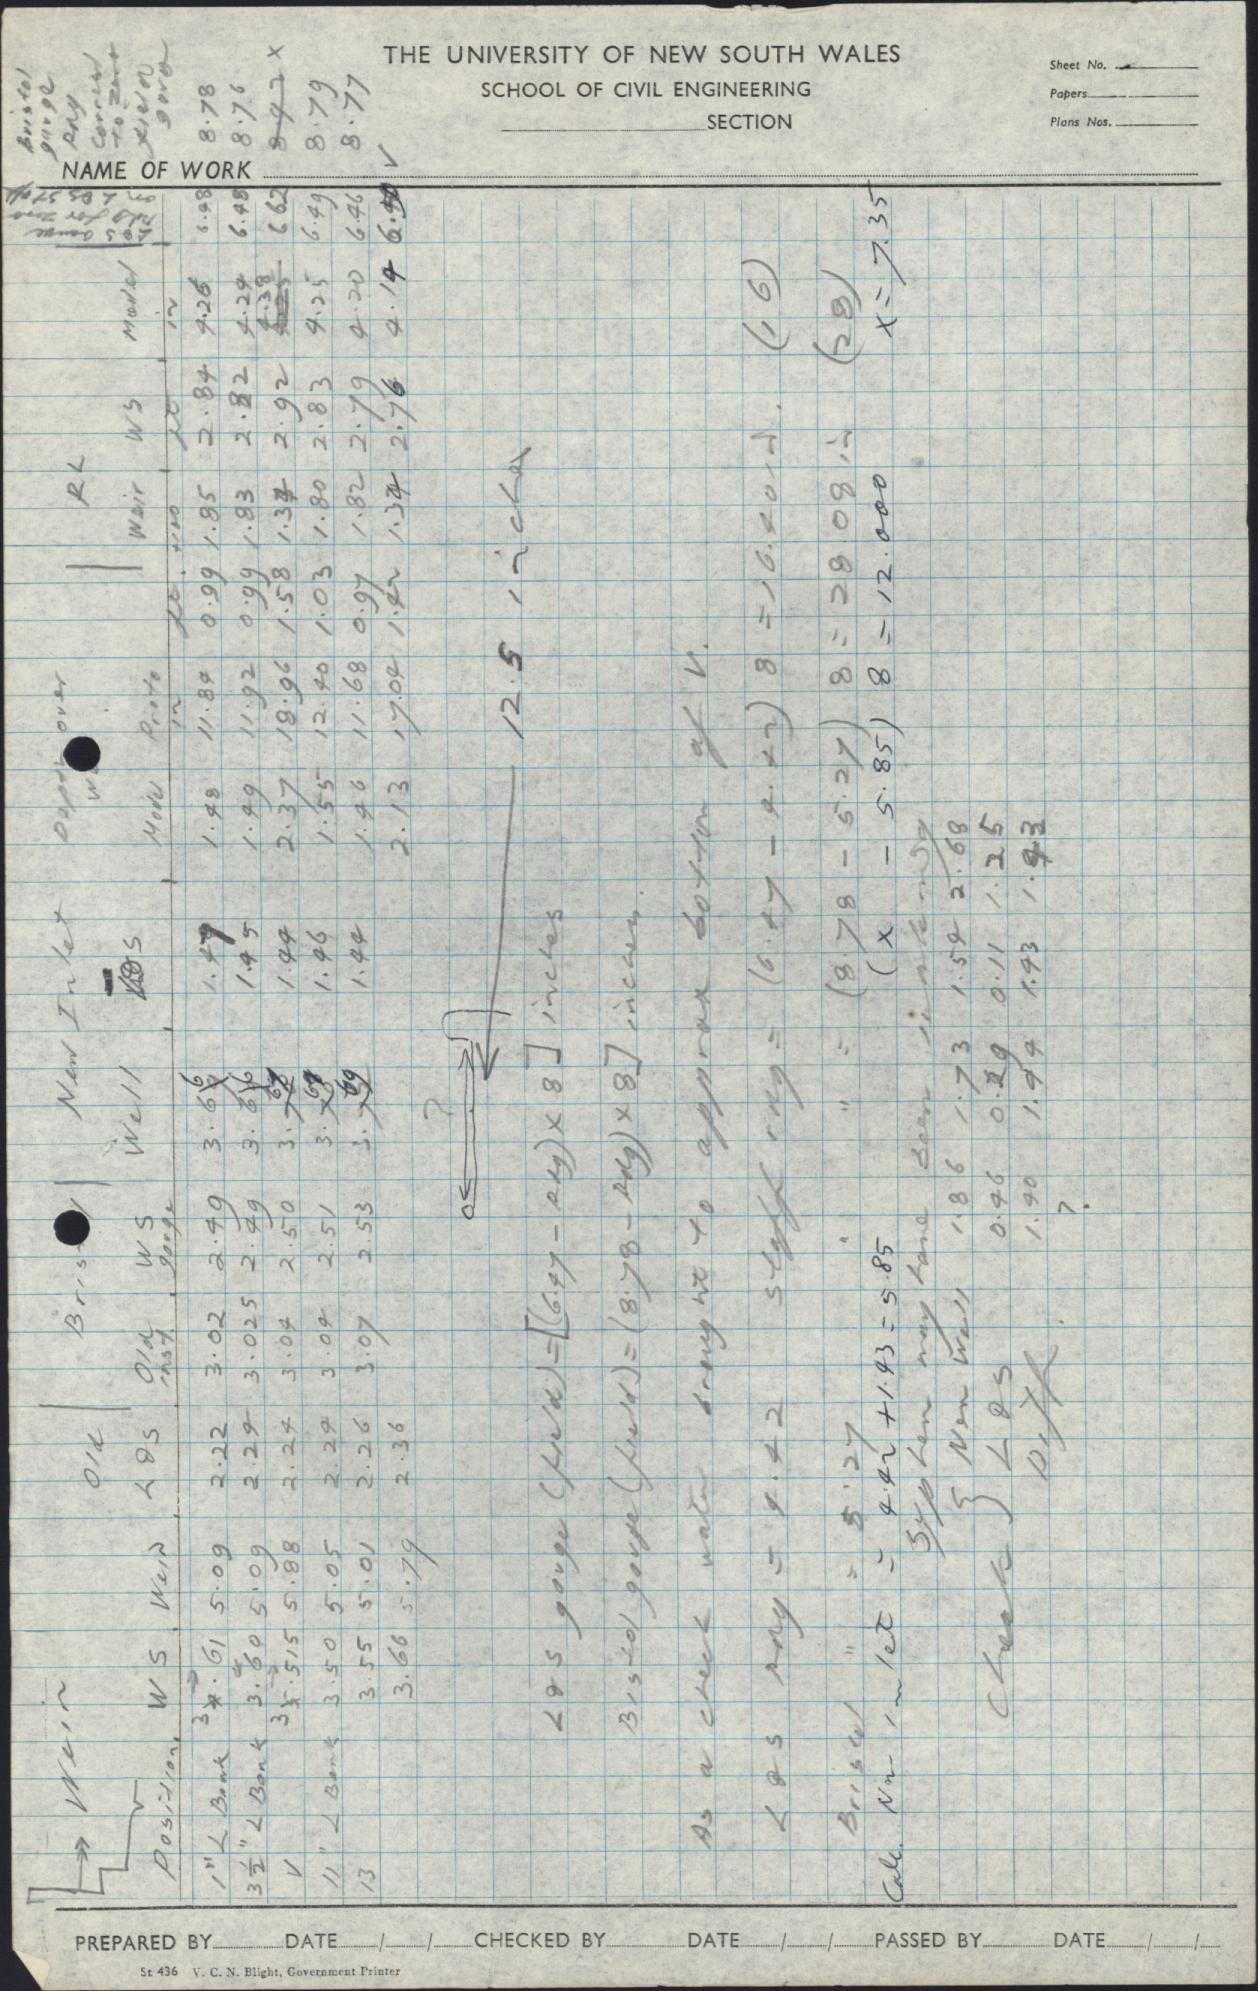 THE UNIVERSITY OF NEW SOUTH WALES
SCHOOL OF CIVIL ENGINEERING
SECTION
Sheet No.
Papers
Plans Nos.
NAME OF WORK
→ Weir
Old Bris New Inlet Depth over RL
Position WS Weir L&S Old inst WS gauge Well Model Proto in Weir WS Model in
Bristol gauge rdg
1" L Bank 3.61 5.09 2.22 3.02 2.49 3.66 1.47 1.48 11.84 0.99 1.85 2.84 4.26 6.48 8.78
3½" L Bank 3.60 5.09 2.24 3.025 2.49 3.66 1.45 1.49 11.92 0.99 1.83 2.82 4.24 6.48 8.76
V 3.515 5.88 2.24 3.04 2.50 1.44 2.37 18.96 1.58 1.34 2.92 4.38 6.62 8.92 x
11" L Bank 3.50 5.05 2.24 3.04 2.51 1.46 1.55 12.40 1.03 1.80 2.83 4.25 6.49 8.79
13 3.55 5.01 2.26 3.07 2.53 1.44 1.46 11.68 0.97 1.82 2.79 4.20 6.46 8.77
3.66 5.79 2.36 2.13 17.04 1.42 1.34 2.76 4.14 V
? 12.5 inches
L&S gauge (field) = [(6.47 - rdg) x 8] inches
Bristol gauge (field) = (8.78 - rdg) x 8] inches.
As a check water brought to approx bottom of V.
L&S rdg = 4.42 staff rdg = (6.47 - 4.42) 8 = 16.40 in. (16)
Bristol " = 5.27 " " = (8.78 - 5.27) 8 = 28.08 in (28)
Calc. Nw inlet = 4.42 + 1.43 = 5.85 (x - 5.85) 8 = 12.000 x = 7.35
Syphen may have been
Check } New Well 1.86 1.73 1.54 2.68
L&S 0.46 0.29 0.11 1.25
Diff. 1.40 1.44 1.43 1.43
?
PREPARED BY DATE / / CHECKED BY DATE / / PASSED BY DATE / /
St 436 V. C. N. Blight, Government Printer